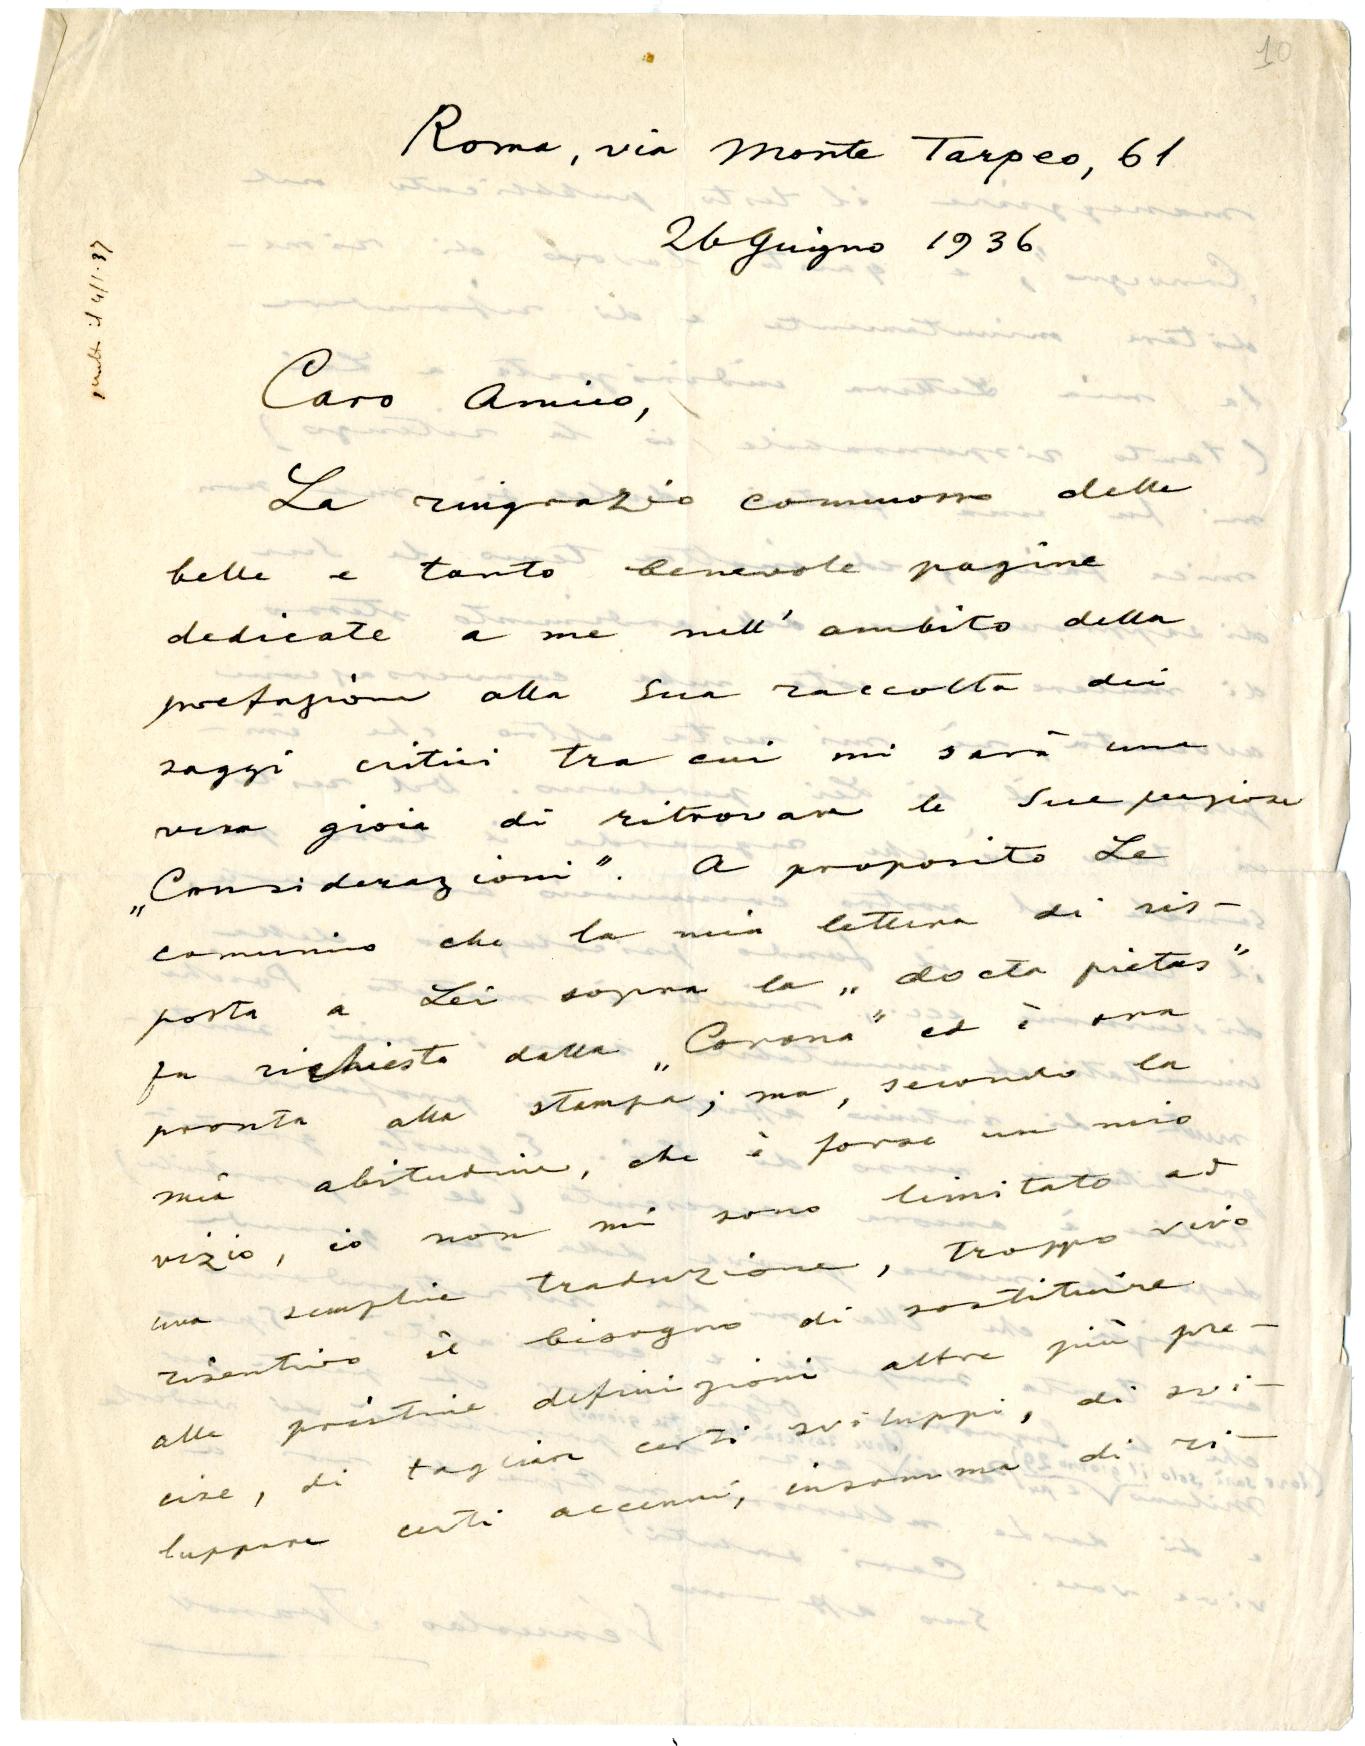 10
Roma, via Monte Tarpeo, 61
26 Giugno 1936
Caro Amico,
La ringrazio commosso delle
belle e tanto benevole pagine
dedicate a me nell' ambito della
prefazione alla Sua raccolta dei
saggi critici tra cui mi sarà una
vera gioia di ritrovare le Sue preziose
„Considerazioni”. A proposito Le
comunico che la mia lettera di ris-
posta a Lei sopra la „docta pietas”
fu richiesta dalla „Corona” ed è ora
pronta alla stampa; ma, secondo la
mia abitudine, che è forse un mio
vizio, io non mi sono limitato ad
una semplice traduzione, troppo vivo
risentivo il bisogno di sostituire
alle pristine definizioni altre più pre-
cise, di tagliare certi sviluppi, di svi-
luppare certi accenni, insomma di ri-